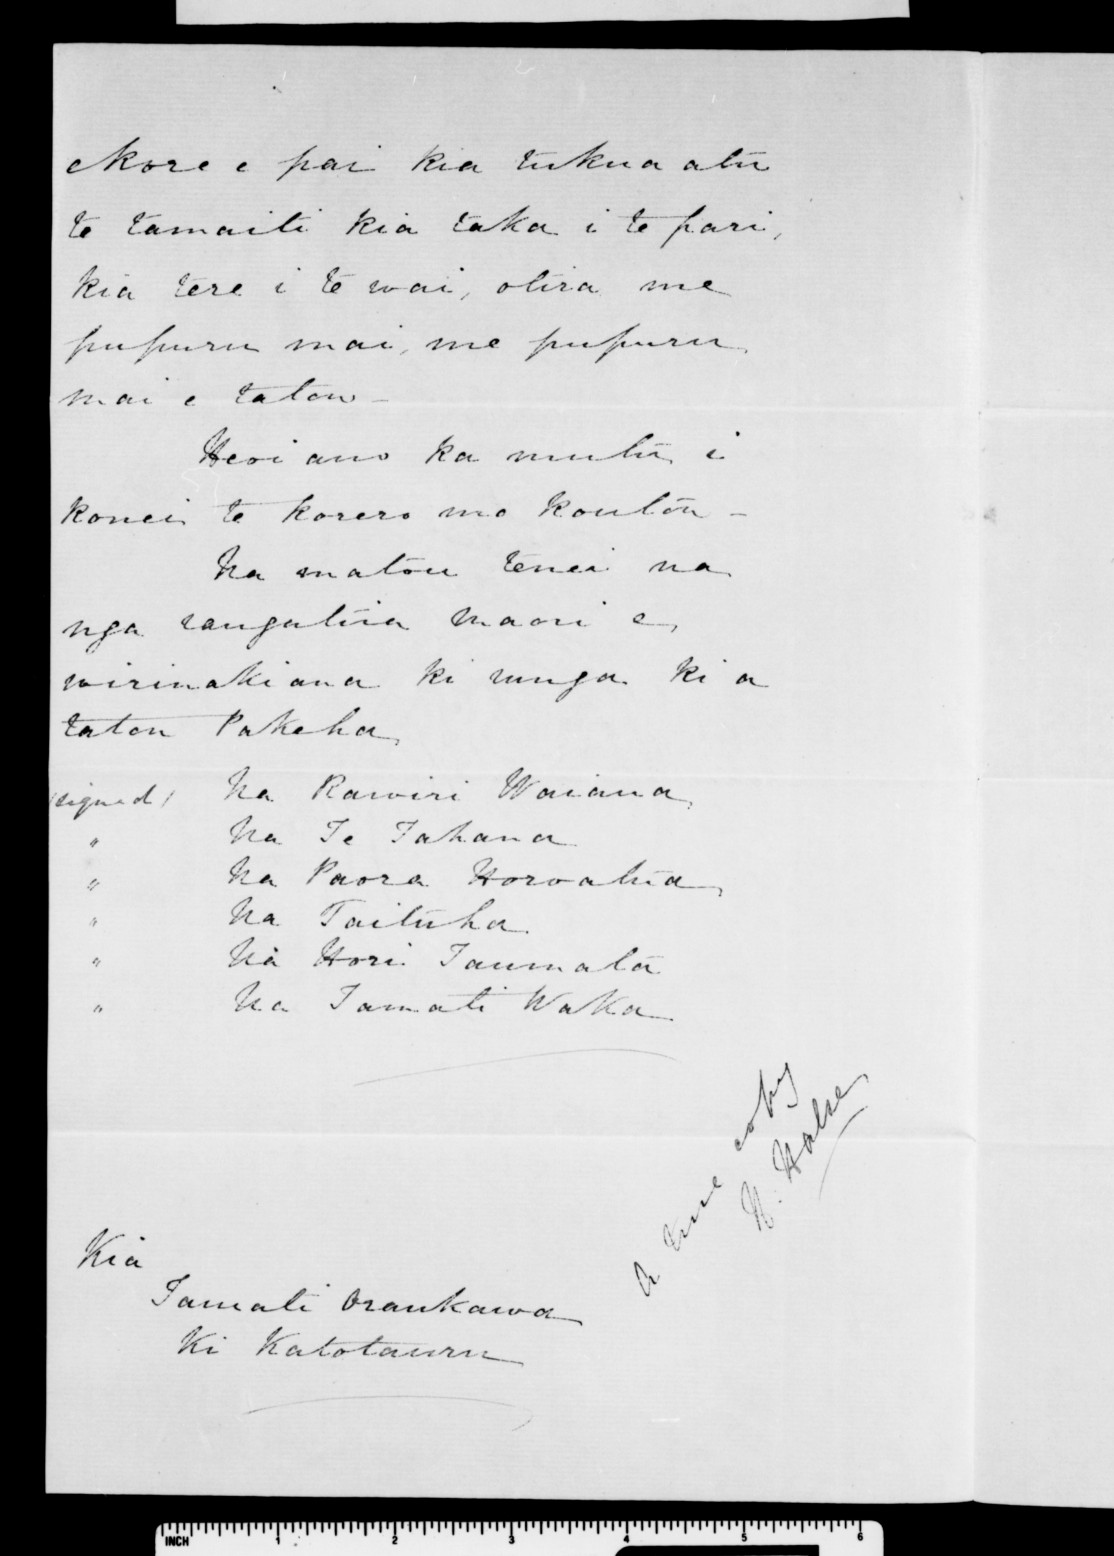 ekore e pai kia tukua atu
te tamaiti kia taka i te pari,
kia tere i te wai, otira me
pupuru mai, me pupuru
mai e tatou -
Heoi ano ka mutu i
konei te korero mo koutou -
Na matou tenei na
nga rangatira maori e
wirinakiana ki runga ki a
tatou Pakeha
(signed) Na Rawiri Waiaua
" Na Te Tahana
" Na Paora Horoatua
" Na Taituha
" Na Hori Taumata
" Na Tamati Waka
a true copy
H. Halse
Kia
Tamati Oraukawa
Ki Katotauru
INCH 1 2 3 4 5 6